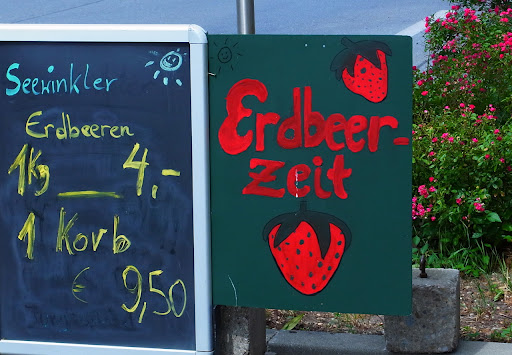 Seewinkler
Erdbeeren
1Kg 4,-
1 Korb
€ 9,50
Erdbeer-
zeit